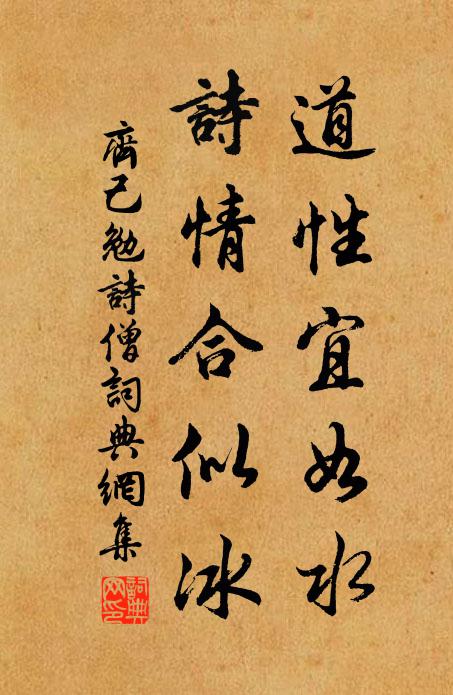 道性宜如水
詩情合似冰
齊己勉詩僧詞典網集
詞典網印